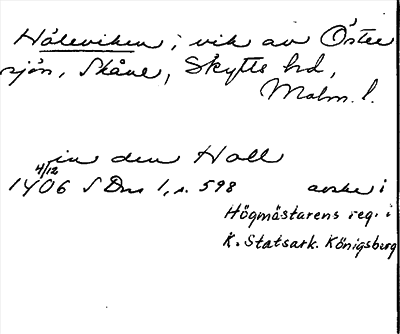 Håleviken; vik av Öster
sjön, Skåne, Skytts hd,
Malm. l.
in den Hall
4/12
1406 SDns 1, s. 598 avskr i
Högmästarens reg. i
K. Statsark. Königsberg